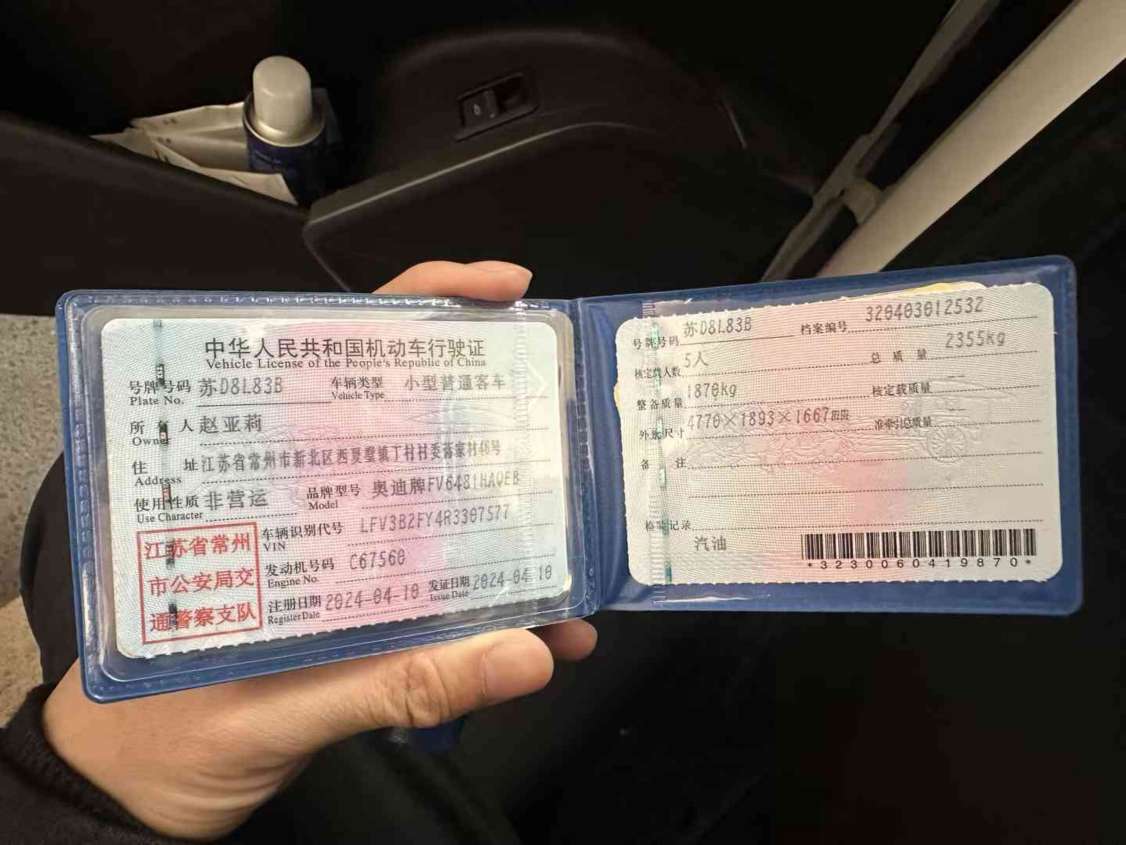 中华人民共和国机动车行驶证
Vehicle License of the People's Republic of China
号牌号码 苏D8L83B 车辆类型 小型普通客车
Plate No. Vehicle Type
所有人 赵亚莉
Owner
住址 江苏省常州市新北区西夏墅镇丁村村委蒋家村46号
Address
使用性质 非营运 品牌型号 奥迪牌FV6481HAQEB
Use Character Model
江苏省常州
市公安局交
通警察支队
车辆识别代号 LFV3B2FY4R3307577
VIN
发动机号码 C67560
Engine No.
注册日期 2024-04-10 发证日期 2024-04-10
Register Date Issue Date
号牌号码 苏D8L83B 档案编号 320403012532
核定载人数 5人 总质量 2355kg
整备质量 1870kg 核定载质量
外廓尺寸 4770×1893×1667mm 准牵引总质量
备注
检验记录
汽油
*3230060419870*